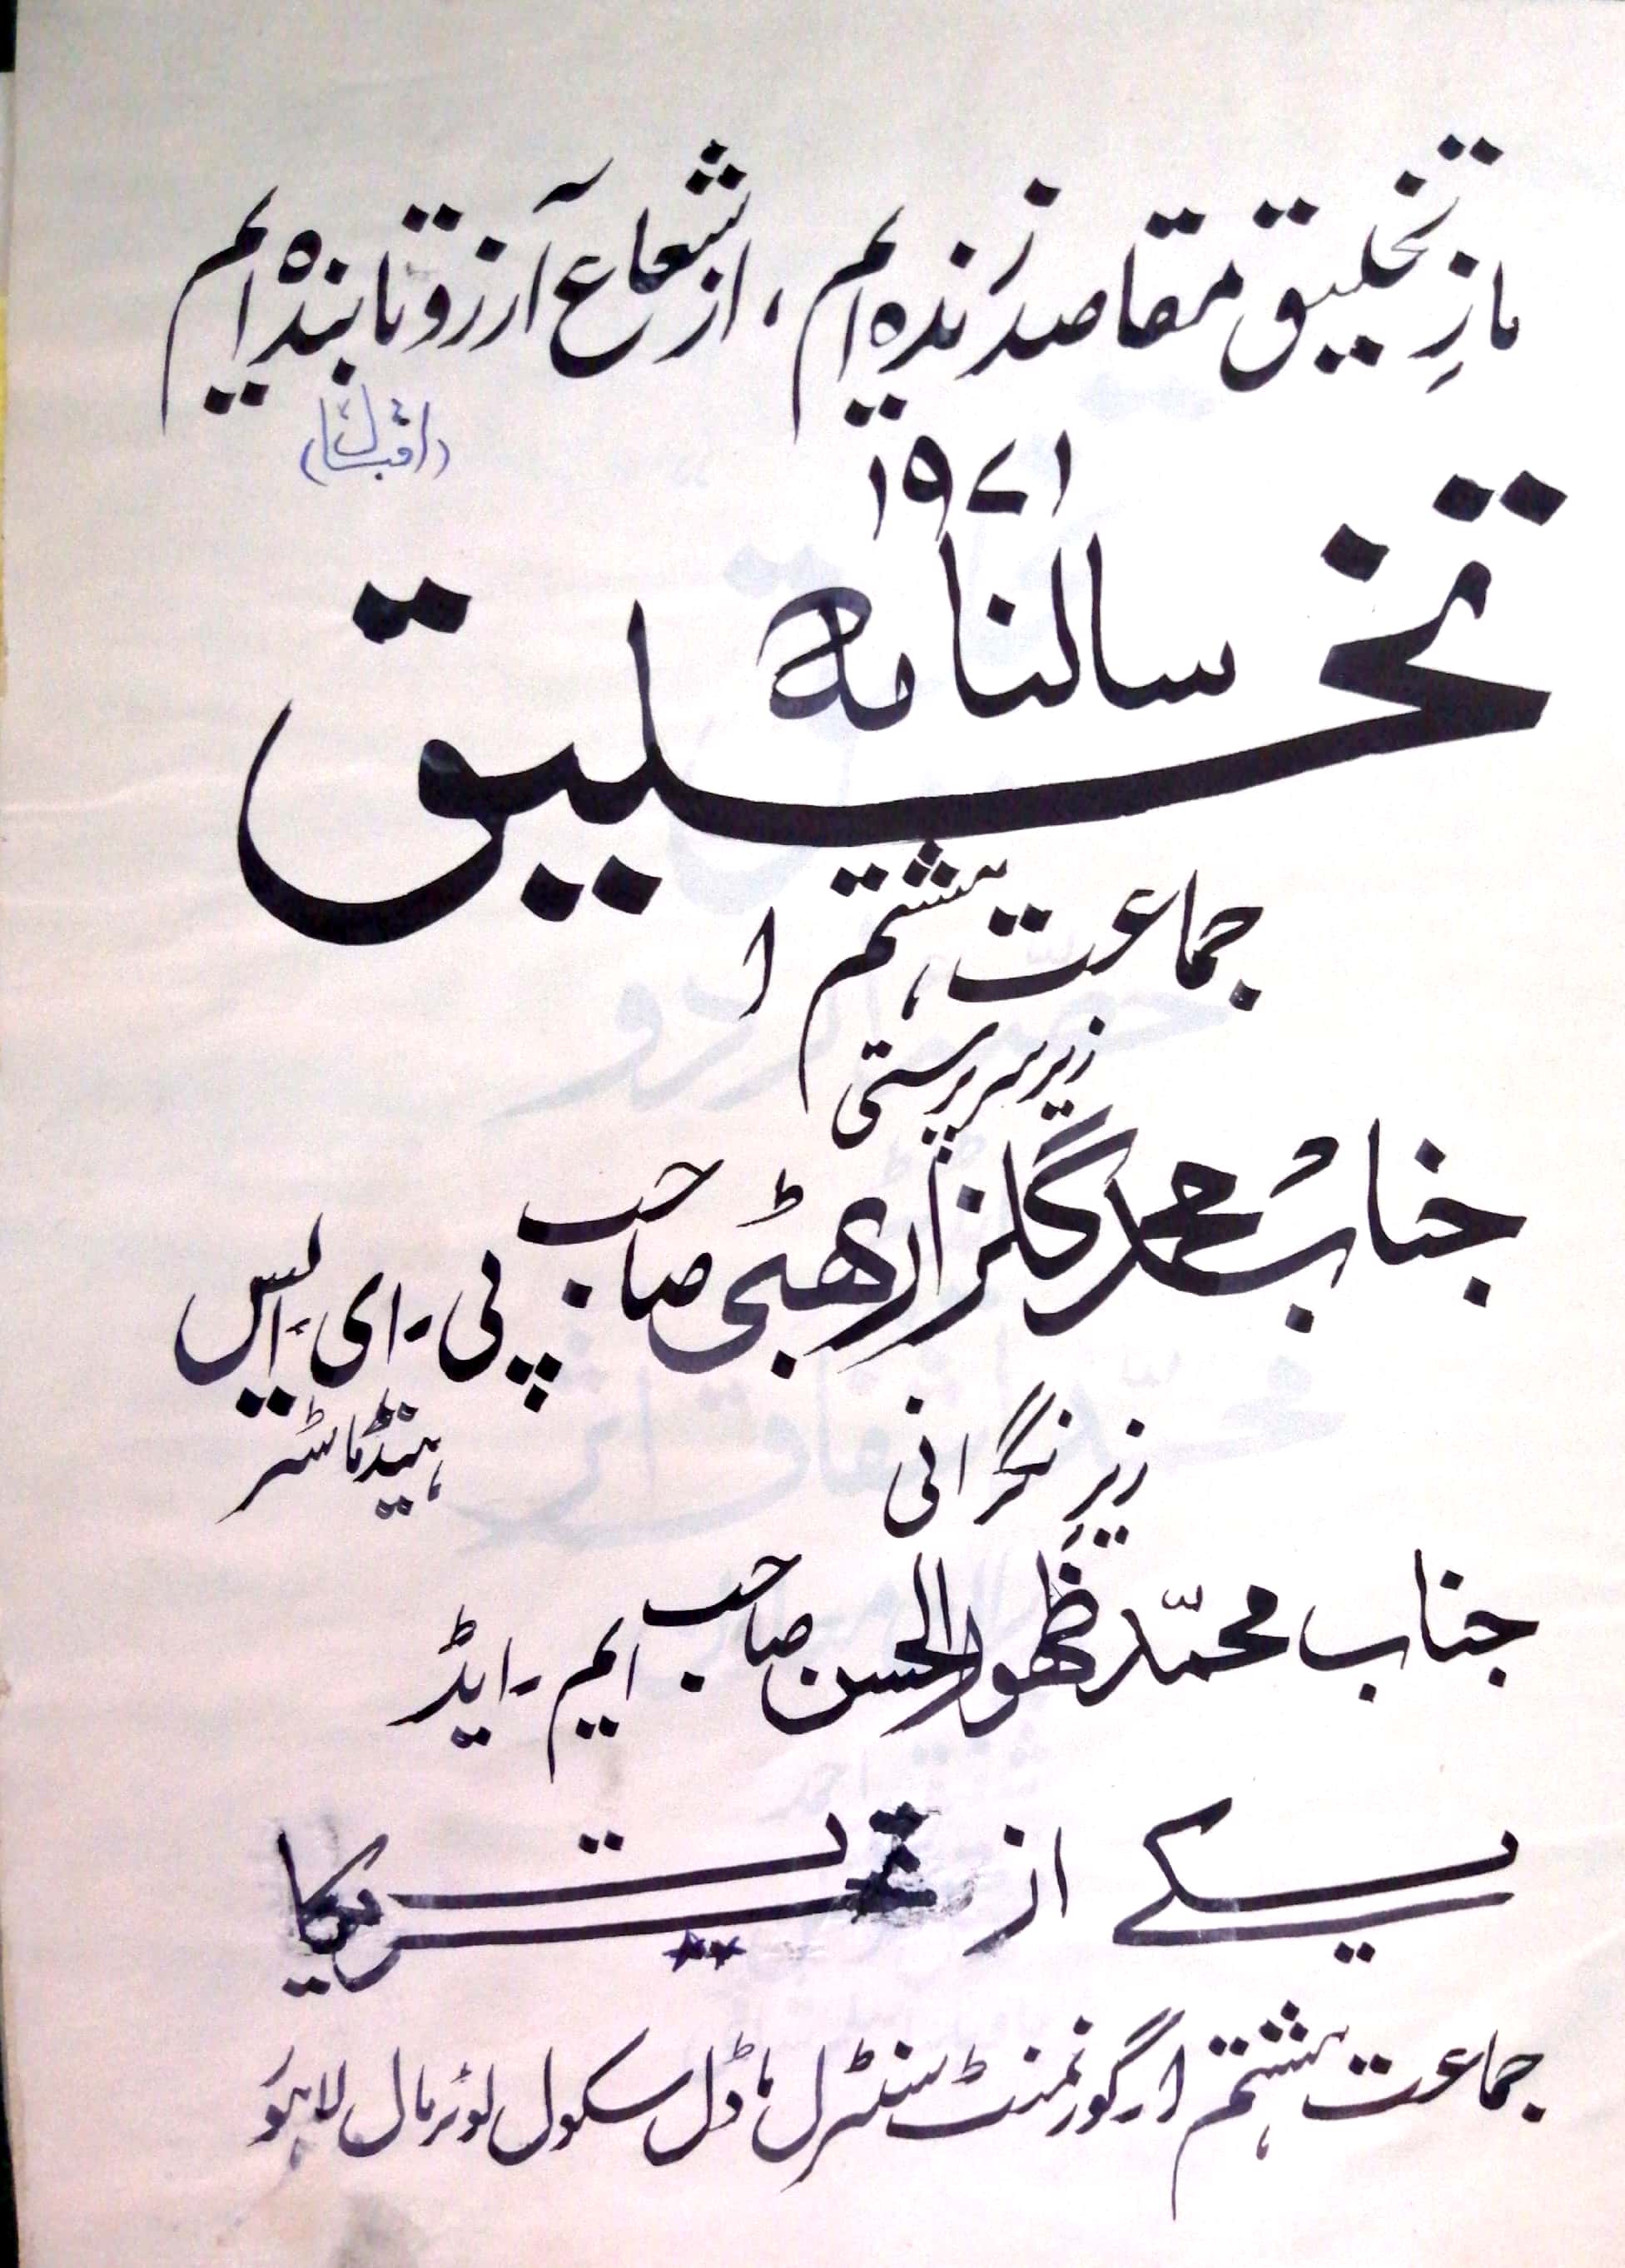 ما زِ تخلیق مقاصد زندہ ایم ، از شعاع آرزو تابندہ ایم
(اقبالؒ)
۱۹۷۱
سالنامہ
تخلیق
جماعت ہشتم ا
زیر سرپرستی
جناب محمد گلزار بھٹی صاحب پی۔ای۔ایس
ہیڈماسٹر
زیر نگرانی
جناب محمّد ظہور الحسن صاحب ایم۔ایڈ
یکے از
جماعت ہشتم ا گورنمنٹ سنٹرل ماڈل سکول لوئر مال لاہور